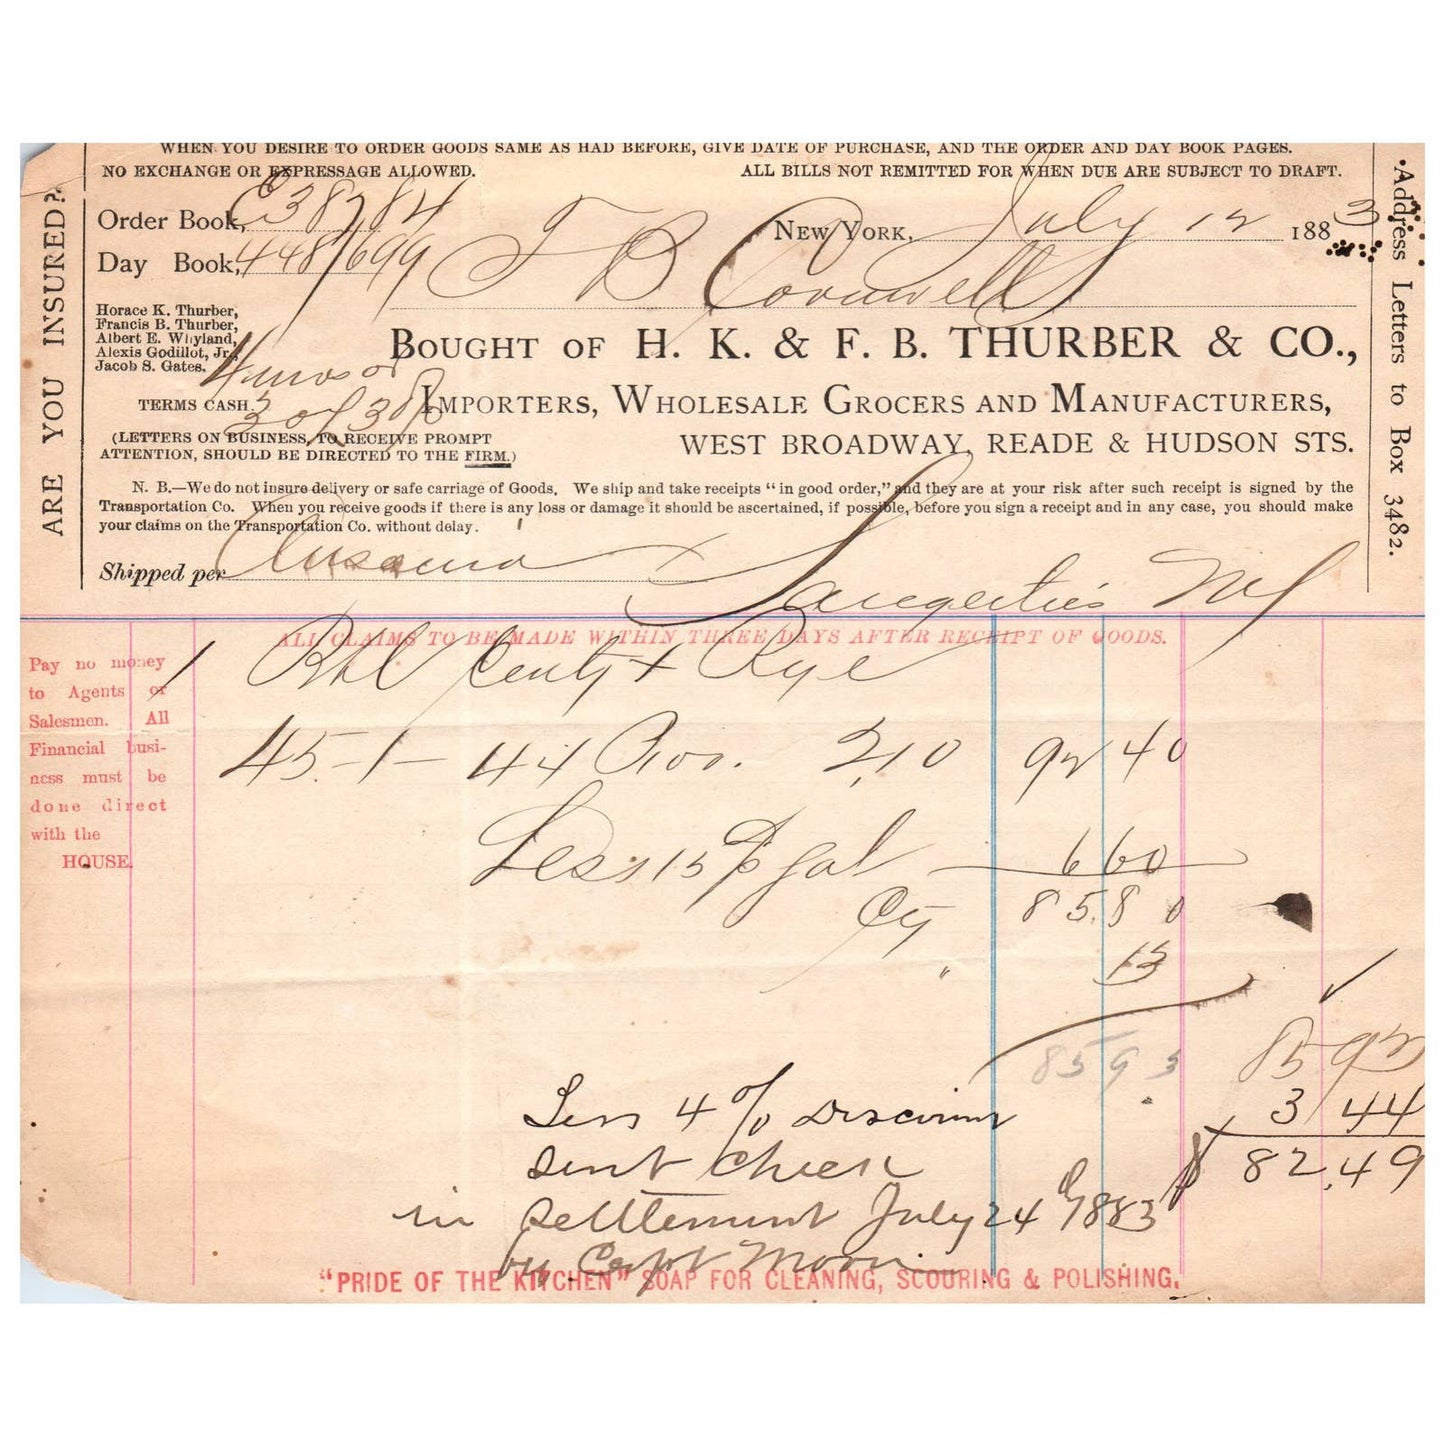 WHEN YOU DESIRE TO ORDER GOODS SAME AS HAD BEFORE, GIVE DATE OF PURCHASE, AND THE ORDER AND DAY BOOK PAGES.
NO EXCHANGE OR EXPRESSAGE ALLOWED. ALL BILLS NOT REMITTED FOR WHEN DUE ARE SUBJECT TO DRAFT.
ARE YOU INSURED?
Address Letters to Box 3482.
Order Book, C38784 New York, July 12 1883
Day Book, 448/699 T B Cornwell
Horace K. Thurber,
Francis B. Thurber,
Albert E. Whyland,
Alexis Godillot, Jr.,
Jacob S. Gates.
BOUGHT OF H. K. & F. B. THURBER & CO.,
4 mos or
IMPORTERS, WHOLESALE GROCERS AND MANUFACTURERS,
TERMS CASH. 3 of 30
WEST BROADWAY, READE & HUDSON STS.
(LETTERS ON BUSINESS, TO RECEIVE PROMPT
ATTENTION, SHOULD BE DIRECTED TO THE FIRM.)
N. B.—We do not insure delivery or safe carriage of Goods. We ship and take receipts "in good order," and they are at your risk after such receipt is signed by the
Transportation Co. When you receive goods if there is any loss or damage it should be ascertained, if possible, before you sign a receipt and in any case, you should make
your claims on the Transportation Co. without delay.
Shipped per Saugerties NY
ALL CLAIMS TO BE MADE WITHIN THREE DAYS AFTER RECEIPT OF GOODS.
Pay no money
to Agents or
Salesmen. All
Financial busi-
ness must be
done direct
with the
HOUSE.
1 Bbl Rye
45-1- 44 2,10 92 40
Less 15 gal 6 60
Ctg 85.80
" 13
8593 85 93
Less 4 % Discount 3 44
Sent Check $ 82.49
in Settlement July 24 1883
by Capt
"PRIDE OF THE KITCHEN" SOAP FOR CLEANING, SCOURING & POLISHING.